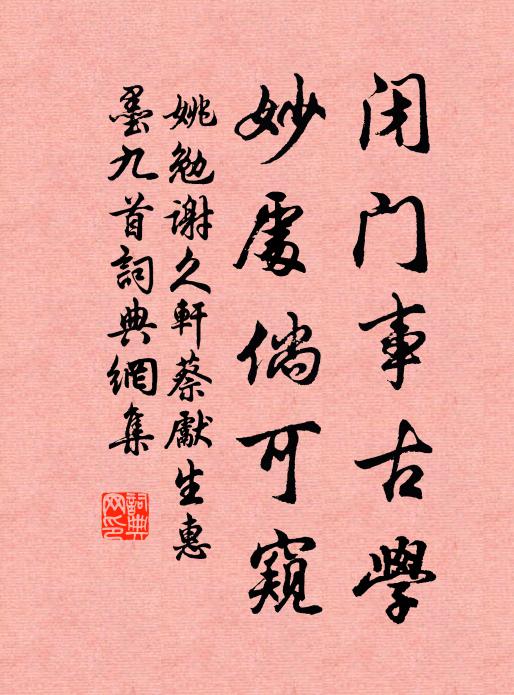 闭门事古學
妙處倘可窺
姚勉謝久軒蔡獻生惠
墨九首詞典網集
詞典
网印